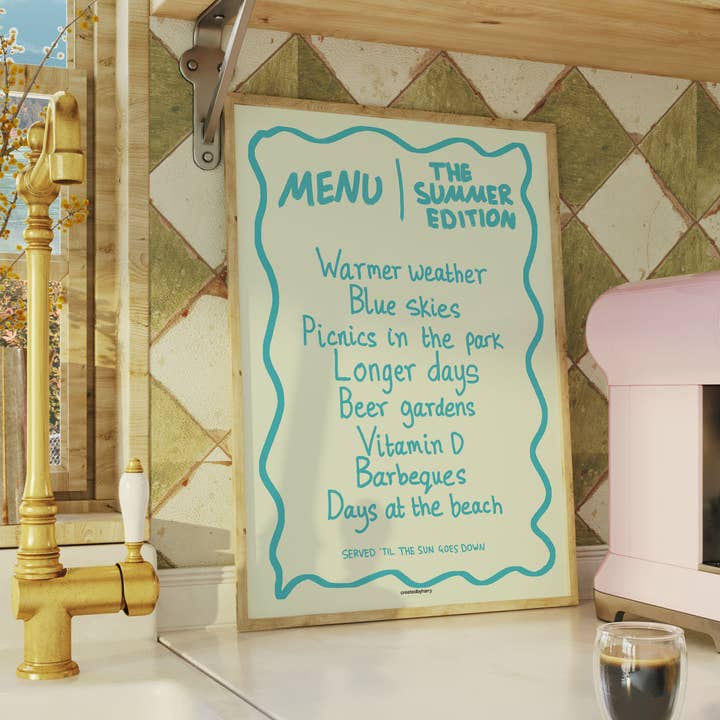 MENU | THE SUMMER EDITION
Warmer weather
Blue skies
Picnics in the park
Longer days
Beer gardens
Vitamin D
Barbeques
Days at the beach
SERVED 'TIL THE SUN GOES DOWN
createdbyharry